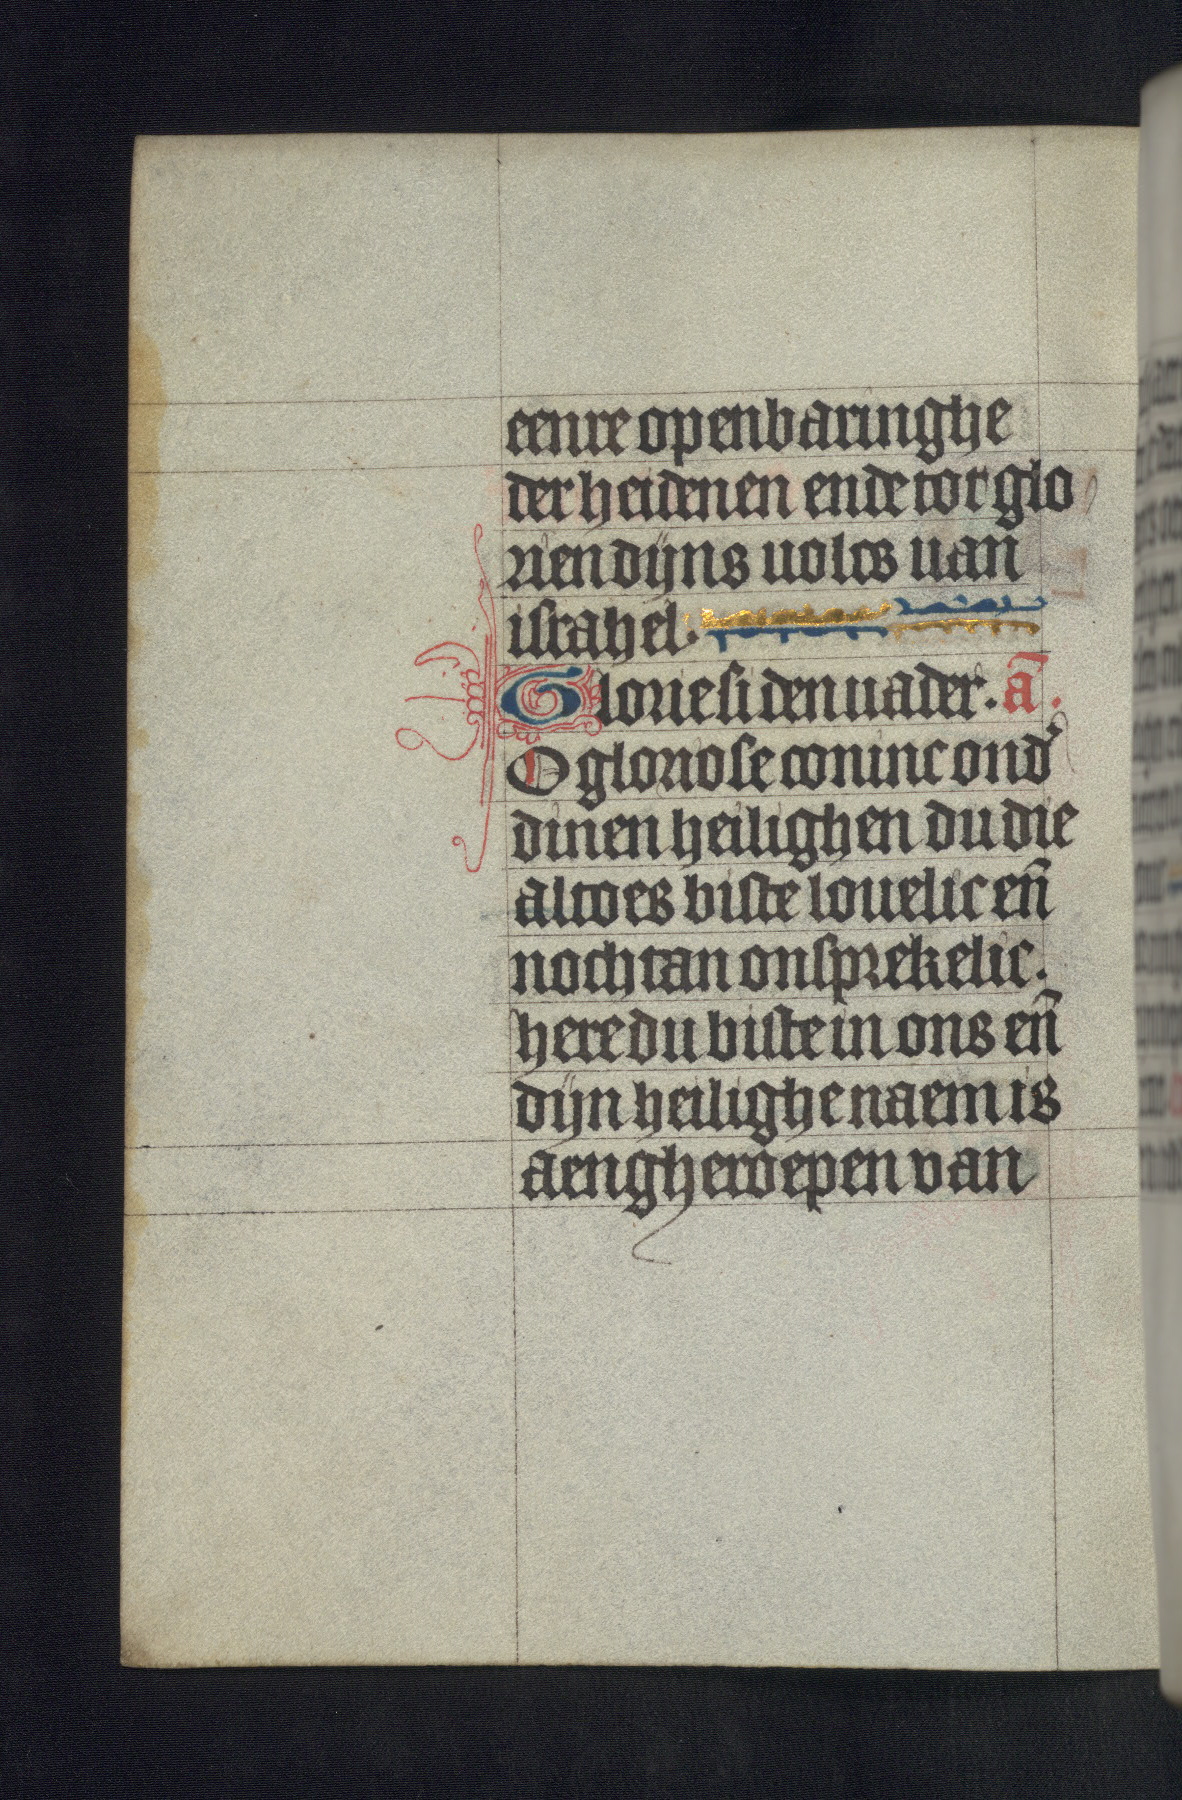 eenre openbaringhe
der heidenen ende tot glo
rien dijns uolcs uan
israhel.
Glorie si den uader. a̅.
O gloriose coninc ond᷎
dinen heilighen du die
altoes biste louelic en̅
nochtan onsprekelic.
here du biste in ons en̅
dijn heilighe naem is
aengheroepen van